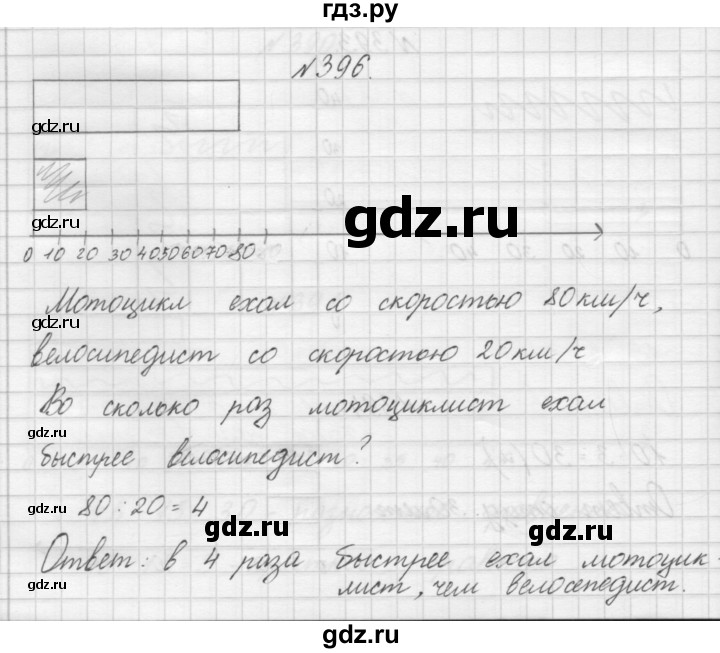 гдз.ру
№396.
gdz.ru
gdz.ru
gdz.ru
0 10 20 30 40 50 60 70 80
Мотоцикл ехал со скоростью 80 км/ч,
gdz.ru
велосипедист со скоростью 20 км/ч
gdz.ru
Во сколько раз мотоциклист ехал
gdz.ru
быстрее велосипедист?
80 : 20 = 4
gdz.ru
gdz.ru gdz.ru
Ответ: в 4 раза быстрее ехал мотоцик-
gdz.ru
лист, чем велосепедист.
gdz.ru
гдз.ру